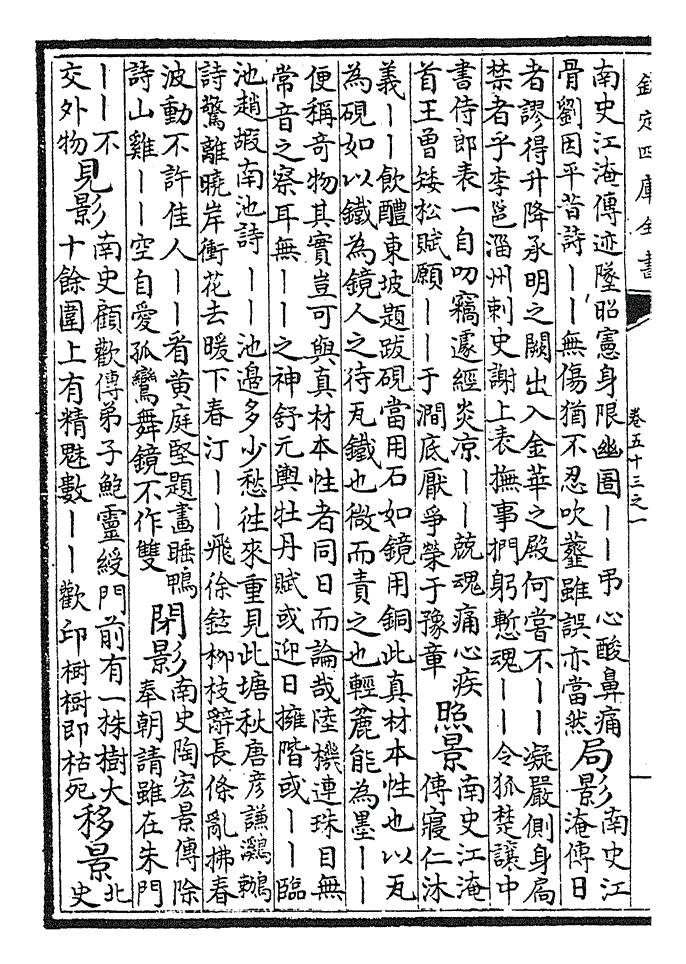 欽定四庫全書
卷五十三之一
南史江淹傳迹墜昭憲身限幽圄——弔心酸鼻痛
骨劉因平昔詩——無傷猶不忍吹虀雖誤亦當然
局影
南史江
淹傳日
者謬得升降承明之闕出入金華之殿何嘗不——凝嚴側身扃
禁者乎李邕淄州刺史謝上表撫事捫躬慙魂——令狐楚讓中
書侍郎表一自叨竊遽經炎凉——兢魂痛心疾
首王曾矮松賦願——于澗底厭爭榮于豫章
照景
南史江淹
傳寢仁沐
義——飲醴東坡題跋硯當用石如鏡用銅此真材本性也以瓦
為硯如以鐵為鏡人之待瓦鐵也微而責之也輕麄能為墨——
便稱奇物其實豈可與真材本性者同日而論哉陸機連珠目無
常音之察耳無——之神舒元輿牡丹賦或迎日擁階或——臨
池趙嘏南池詩——池邊多少愁徃來重見此塘秋唐彦謙鸂鶒
詩驚離曉岸衝花去暖下春汀——飛徐鉉柳枝辭長條亂拂春
波動不許佳人——看黄庭堅題畫睡鴨
詩山雞——空自愛孤鸞舞鏡不作雙
閉影
南史陶宏景傳除
奉朝請雖在朱門
——不
交外物
見影
南史顧歡傳弟子鮑靈綬門前有一株樹大
十餘圍上有精魅數——歡印樹樹即枯死
移景
北
史